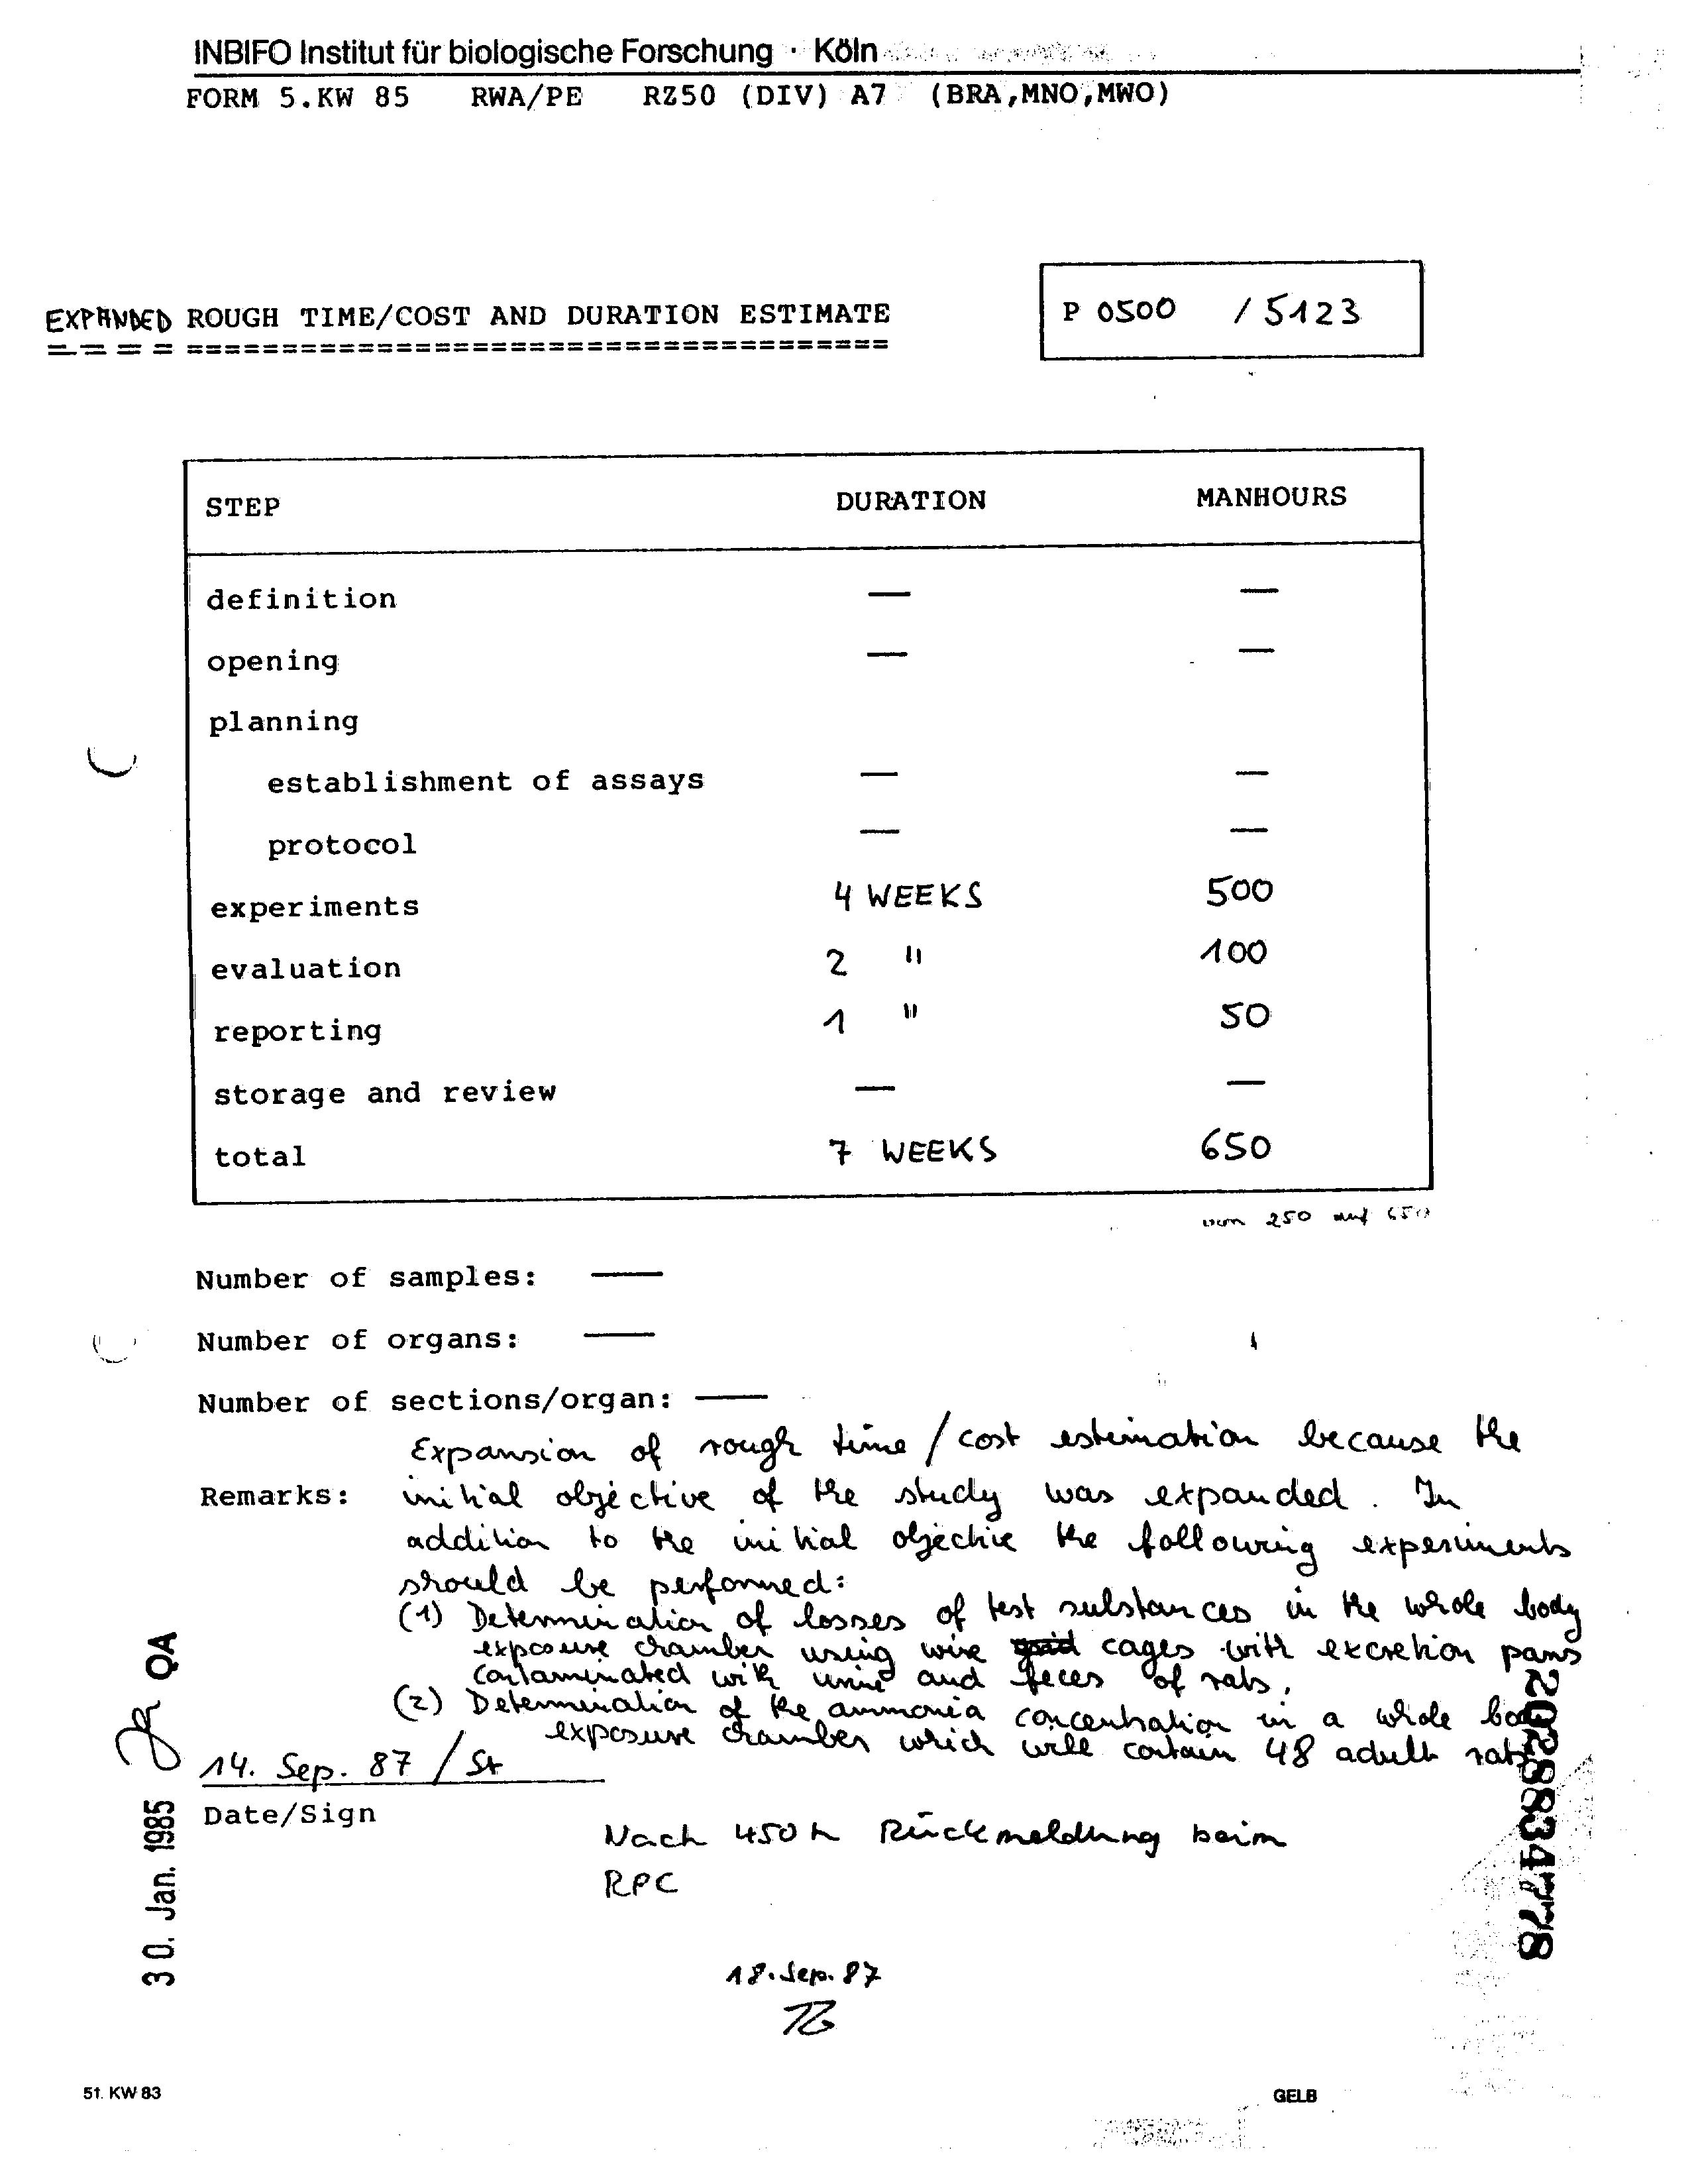 INBIFO Institut für biologische Forschung · Köln
FORM 5.KW 85 RWA/PE RZ50 (DIV) A7 (BRA,MNO,MWO)
P 0500 / 5123
EXPANDED ROUGH TIME/COST AND DURATION ESTIMATE
STEP DURATION MANHOURS
definition — —
opening — —
planning
establishment of assays — —
protocol — —
experiments 4 WEEKS 500
evaluation 2 " 100
reporting 1 " 50
storage and review — —
total 7 WEEKS 650
von 250 auf 650
Number of samples: —
Number of organs: —
Number of sections/organ: —
Expansion of rough time / cost estimation because the
Remarks: initial objective of the study was expanded. In
addition to the initial objective the following experiments
should be performed:
(1) Determination of losses of test substances in the whole body
exposure chamber using wire cages with excretion pans
contaminated with urine and feces of rats.
(2) Determination of the ammonia concentration in a whole body
exposure chamber which will contain 48 adult rats
14. Sep. 87 / St
Date/Sign
Nach 450 h Rückmeldung beim
RPC
18. Sep. 87
30. Jan. 1985 QA
2028834778
51. KW 83
GELB